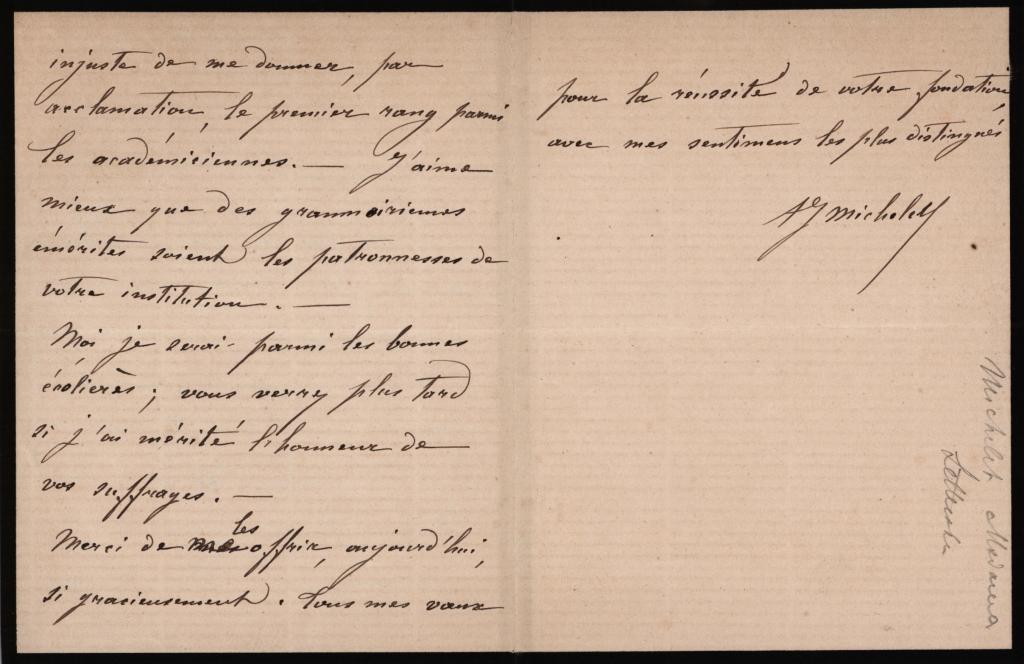 injuste de me donner, par
acclamation, le premier rang parmi
les académiciennes. — J'aime
mieux que des grammairiennes
émérites soient les patronnesses de
votre institution. —
Moi je serai parmi les bonnes
écolières ; vous verrez plus tard
si j'ai mérité l'honneur de
vos suffrages. —
Merci de les offrir, aujourd'hui,
si gracieusement. Tous mes vœux
pour la réussite de votre fondation,
avec mes sentimens les plus distingués
Michelet
Michelet Madame